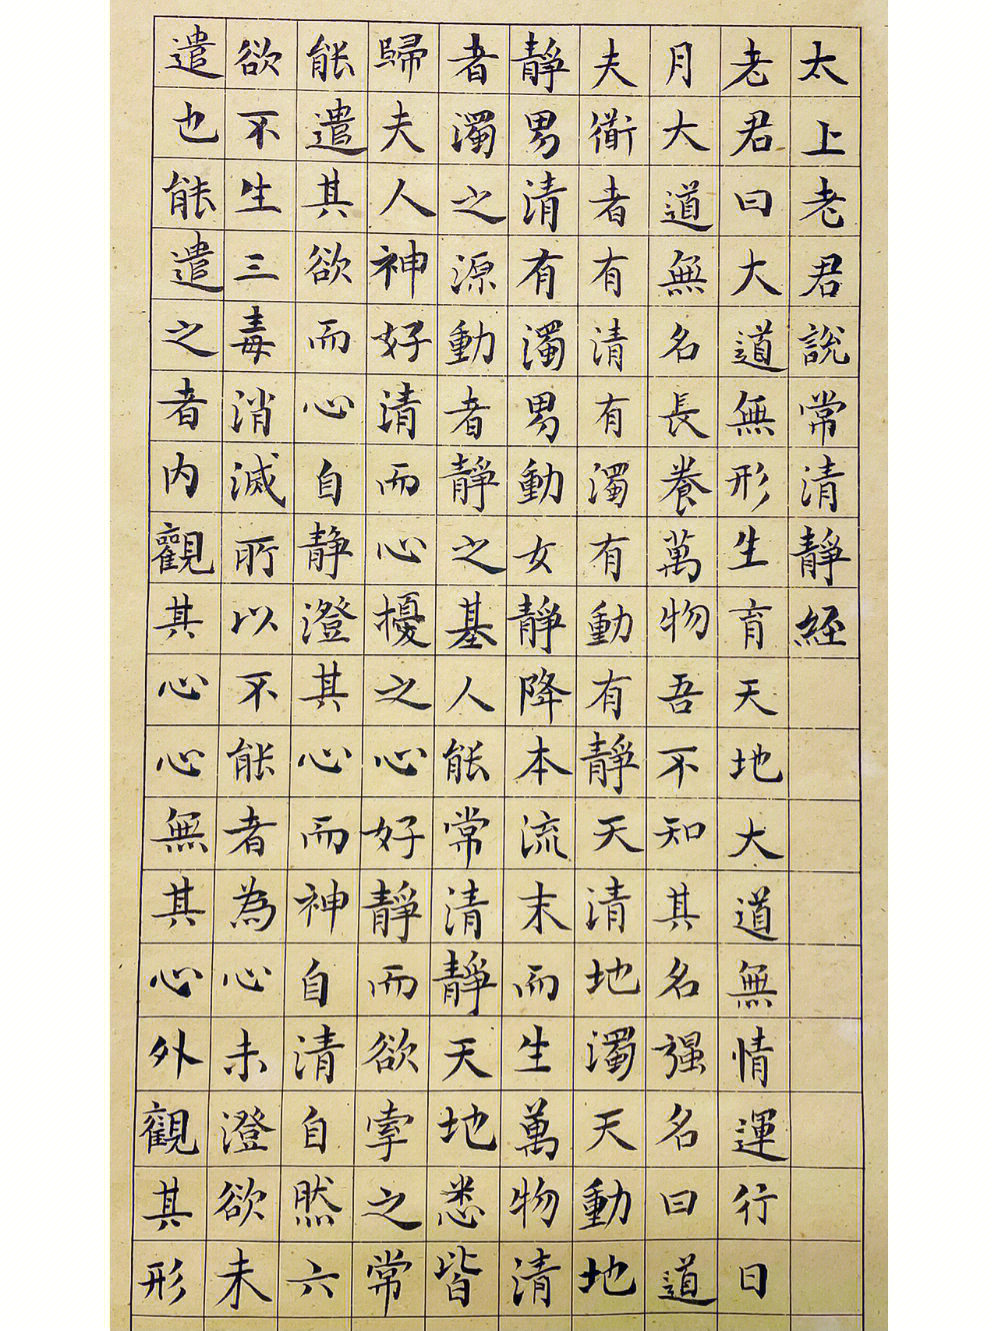 太上老君說常清靜經
老君曰大道無形生育天地大道無情運行日
月大道無名長養萬物吾不知其名强名曰道
夫衜者有清有濁有動有靜天清地濁天動地
靜男清有濁男動女靜降本流末而生萬物清
者濁之源動者靜之基人能常清靜天地悉皆
歸夫人神好清而心擾之心好靜而欲牽之常
能遣其欲而心自靜澄其心而神自清自然六
欲不生三毒消滅所以不能者為心未澄欲未
遣也能遣之者内觀其心心無其心外觀其形